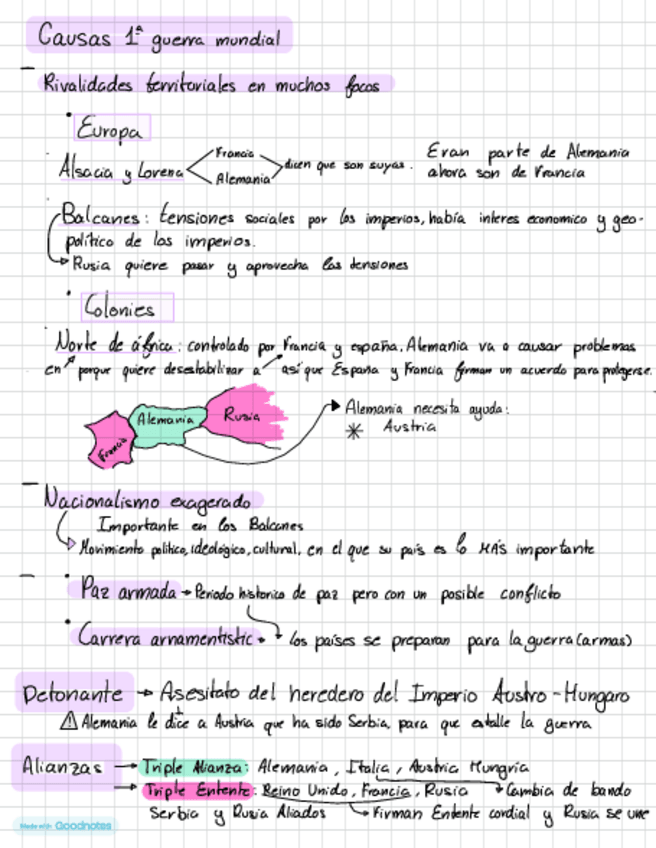 Causas 1ª guerra mundial
Rivalidades territoriales en muchos focos
Europa
Alsacia y Lorena
Francia
Alemania
dicen que son suyas.
Eran parte de Alemania
ahora son de Francia
Balcanes: tensiones sociales por los imperios, había interes economico y geo-
politico de los imperios.
Rusia quiere pasar y aprovecha las tensiones
Colonies
Norte de áfrica: controlado por Francia y españa. Alemania va a causar problemas
en porque quiere desestabilizar a así que España y Francia firman un acuerdo para protegerse.
Francia
Alemania
Rusia
Alemania necesita ayuda:
* Austria
Nacionalismo exagerado
Importante en los Balcanes
Movimiento politico, ideológico, cultural, en el que su país es lo MÁS importante
Paz armada → Periodo historico de paz pero con un posible conflicto
Carrera arnamentistic → los países se preparan para la guerra (armas)
Detonante → Asesitato del heredero del Imperio Austro-Hungaro
⚠ Alemania le dice a Austria que ha sido Serbia, para que estalle la guerra
Alianzas → Triple Alianza: Alemania, Italia, Austria Hungria
→ Triple Entente: Reino Unido, Francia, Rusia → Cambia de bando
Serbia y Rusia Aliados → Firman Entente cordial y Rusia se une
Made with Goodnotes